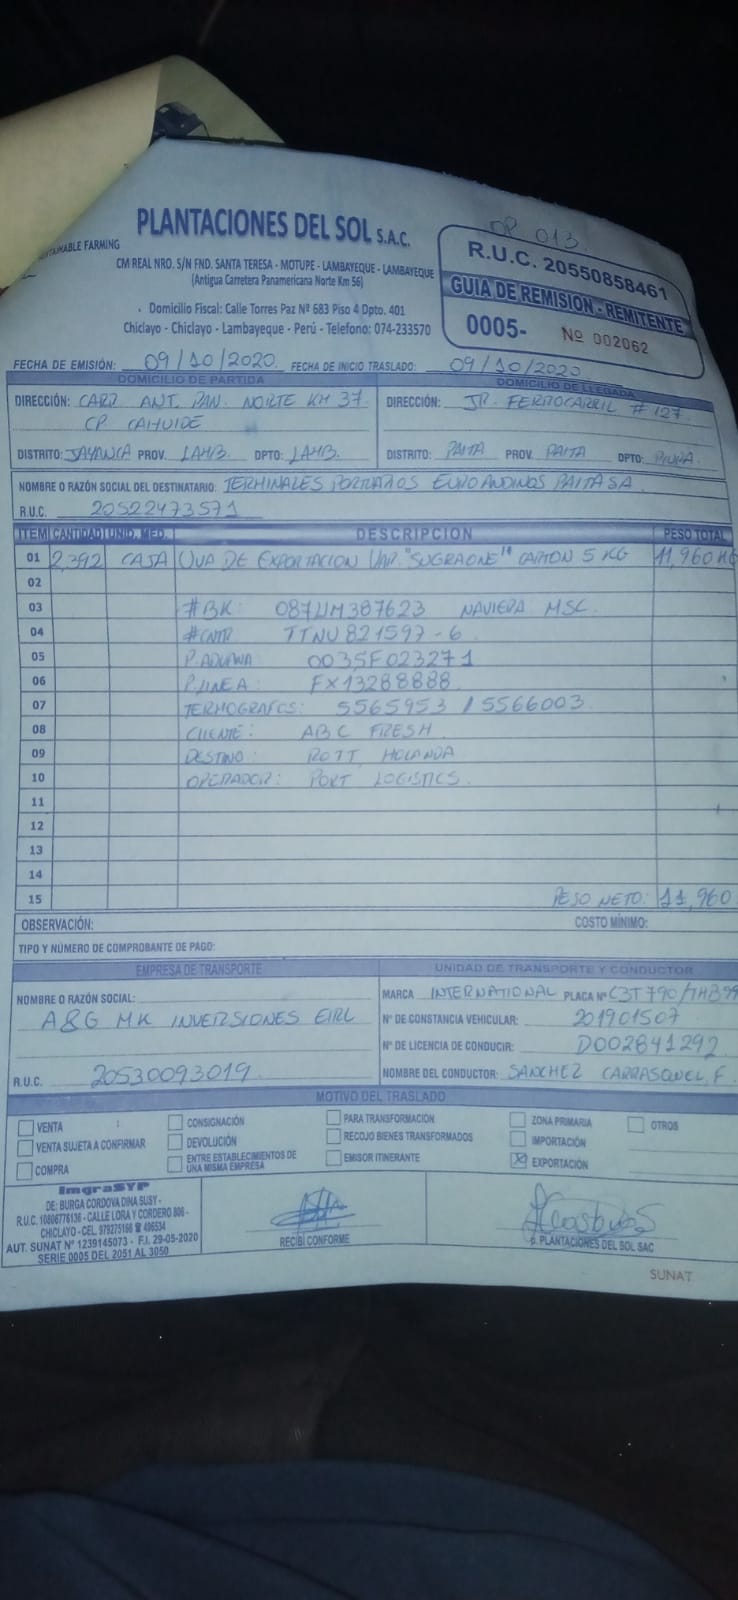 OP 013.
PLANTACIONES DEL SOL S.A.C.
SUSTAINABLE FARMING
CM REAL NRO. S/N FND. SANTA TERESA - MOTUPE - LAMBAYEQUE - LAMBAYEQUE
(Antigua Carretera Panamericana Norte Km 56)
Domicilio Fiscal: Calle Torres Paz Nº 683 Piso 4 Dpto. 401
Chiclayo - Chiclayo - Lambayeque - Perú - Telefono: 074-233570
R.U.C. 20550858461
GUIA DE REMISION - REMITENTE
0005- Nº 002062
FECHA DE EMISIÓN: 09/10/2020 FECHA DE INICIO TRASLADO: 09/10/2020
DOMICILIO DE PARTIDA DOMICILIO DE LLEGADA
DIRECCIÓN: CARR ANT. PAN. NORTE KM 37. DIRECCIÓN: JR. FERROCARRIL # 127.
CP CAHUIDE
DISTRITO: JAYANCA PROV. LAMB. DPTO: LAMB. DISTRITO: PAITA PROV. PAITA DPTO: PIURA.
NOMBRE O RAZÓN SOCIAL DEL DESTINATARIO: TERMINALES PORTUARIOS EUROANDINOS PAITA SA
R.U.C. 20522473571
ITEM CANTIDAD UNID. MED. DESCRIPCION PESO TOTAL
01 2,392 CAJA UVA DE EXPORTACION VAR. "SUGRAONE" CARTON 5 KG 11,960 KG
02
03 #BK: 087UM387623 NAVIERA MSC.
04 #CNTR TTNU 821597-6
05 P. ADUANA: 0035F023271
06 P. LINEA: FX13288888
07 TERMOGRAFOS: 5565953 / 5566003.
08 CLIENTE: ABC FRESH.
09 DESTINO: ROTT, HOLANDA
10 OPERADOR: PORT LOGISTICS.
11
12
13
14
15 PESO NETO: 11,960
OBSERVACIÓN: COSTO MÍNIMO:
TIPO Y NÚMERO DE COMPROBANTE DE PAGO:
EMPRESA DE TRANSPORTE UNIDAD DE TRANSPORTE Y CONDUCTOR
NOMBRE O RAZÓN SOCIAL: MARCA INTERNATIONAL PLACA Nº C3T 790/
A&G MK INVERSIONES EIRL Nº DE CONSTANCIA VEHICULAR: 201901507
Nº DE LICENCIA DE CONDUCIR: D002841292
R.U.C. 20530093019 NOMBRE DEL CONDUCTOR: SANCHEZ CARRASQUEL F.
MOTIVO DEL TRASLADO
VENTA CONSIGNACIÓN PARA TRANSFORMACIÓN ZONA PRIMARIA OTROS
VENTA SUJETA A CONFIRMAR DEVOLUCIÓN RECOJO BIENES TRANSFORMADOS IMPORTACIÓN
COMPRA ENTRE ESTABLECIMIENTOS DE UNA MISMA EMPRESA EMISOR ITINERANTE X EXPORTACIÓN
ImgraSYP
DE: BURGA CORDOVA DINA SUSY -
R.U.C. 10806776136 - CALLE LORA Y CORDERO 806 -
CHICLAYO - CEL. 979275166 ☎ 406534
AUT. SUNAT Nº 1239145073 - F.I. 29-05-2020
SERIE 0005 DEL 2051 AL 3050
RECIBÍ CONFORME
p. PLANTACIONES DEL SOL SAC
SUNAT